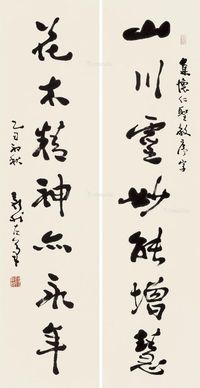 山川灵妙能增慧
集怀仁圣教序字
花木精神亦永年
乙丑初秋